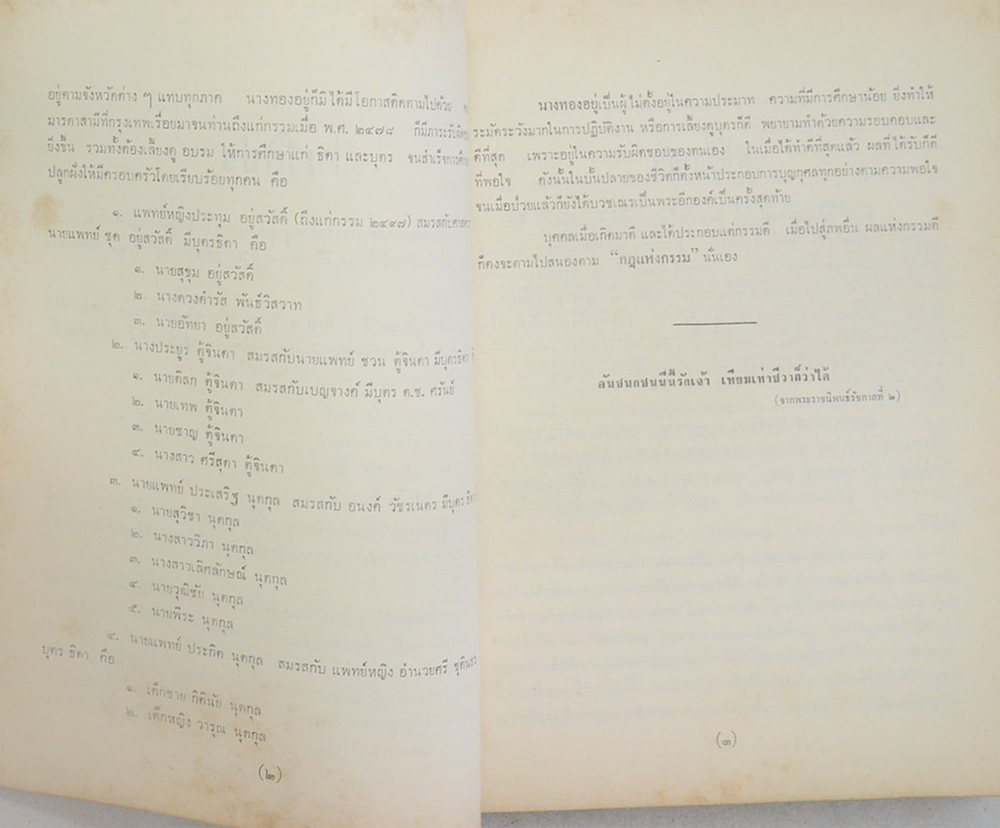 อยู่ตามจังหวัดต่าง ๆ แทบทุกภาค นางทองอยู่ก็มิได้มีโอกาสติดตามไปด้วย
มารดาสามีที่กรุงเทพเรื่อยมาจนท่านถึงแก่กรรมเมื่อ พ.ศ. ๒๔๗๘ ก็มีภาระรับผิด
ยิ่งขึ้น รวมทั้งต้องเลี้ยงดู อบรม ให้การศึกษาแก่ ธิดา และบุตร จนสำเร็จการศึก
ปลูกฝังให้มีครอบครัวโดยเรียบร้อยทุกคน คือ
๑. แพทย์หญิงประทุม อยู่สวัสดิ์ (ถึงแก่กรรม ๒๔๙๗) สมรสกับ
นายแพทย์ ชุด อยู่สวัสดิ์ มีบุตรธิดา คือ
๑. นายสุขุม อยู่สวัสดิ์
๒. นางดวงดำรัส พันธ์วิสวาท
๓. นายอัทยา อยู่สวัสดิ์
๒. นางประยูร ตู้จินดา สมรสกับนายแพทย์ ชวน ตู้จินดา มีบุตรธิดา
๑. นายดิลก ตู้จินดา สมรสกับเบญจางค์ มีบุตร ด.ช. ศรันย์
๒. นายเทพ ตู้จินดา
๓. นายชาญ ตู้จินดา
๔. นางสาว ศรีสุดา ตู้จินดา
๓. นายแพทย์ ประเสริฐ นุตกุล สมรสกับ อนงค์ วัชรเนตร มีบุตร
๑. นายสุวิชา นุตกุล
๒. นางสาววิภา นุตกุล
๓. นางสาวเลิศลักษณ์ นุตกุล
๔. นายวุฒิชัย นุตกุล
๕. นายพีระ นุตกุล
๔. นายแพทย์ ประกิต นุตกุล สมรสกับ แพทย์หญิง อำนวยศรี
บุตร ธิดา คือ
๑. เด็กชาย กิตินัย นุตกุล
๒. เด็กหญิง วารุณ นุตกุล
(๒)
นางทองอยู่เป็นผู้ไม่ตั้งอยู่ในความประมาท ความที่มีการศึกษาน้อย ยิ่งทำให้
ระมัดระวังมากในการปฏิบัติงาน หรือการเลี้ยงดูบุตรก็ดี พยายามทำด้วยความรอบคอบและ
ดีที่สุด เพราะอยู่ในความรับผิดชอบของตนเอง ในเมื่อได้ทำดีที่สุดแล้ว ผลที่ได้รับก็ดี
ที่พอใจ ดังนั้นในบั้นปลายของชีวิตก็ตั้งหน้าประกอบการบุญกุศลทุกอย่างตามความพอใจ
จนเมื่อป่วยแล้วก็ยังได้บวชเณรเป็นพระอีกองค์เป็นครั้งสุดท้าย
บุคคลเมื่อเกิดมาดี และได้ประกอบแต่กรรมดี เมื่อไปสู่ภพอื่น ผลแห่งกรรมดี
ก็คงจะตามไปสนองตาม “กฎแห่งกรรม” นั่นเอง
อันชนกชนนีนี้รักเจ้า เทียมเท่าชีวาก็ว่าได้
(จากพระราชนิพนธ์รัชกาลที่ ๒)
(๓)